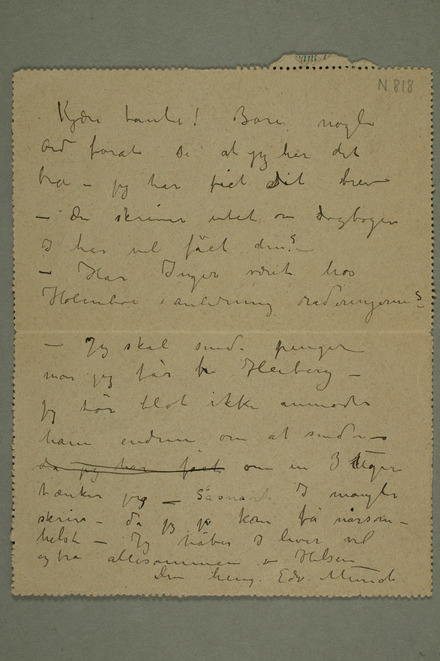 N 818
Kjære tante! Bare nogle
ord forat se at jeg har det
bra – jeg har fået dit brev
– Du skriver intet om dagbogen
I har vel fået den?
– Har Inger været hos
Holmboe i anledning raderingerne?
– Jeg skal sende penger
når jeg får fra Heiberg –
Jeg tør blot ikke anmode
ham endnu om at sende –
da jeg har fået om en 3 uger
tænker jeg – Såsnart I mangler
skriv – da jeg jo kan få nårsom–
helst – Jeg håber I lever vel
og bra allesammen Hilsen
Din heng. Edv. Munch